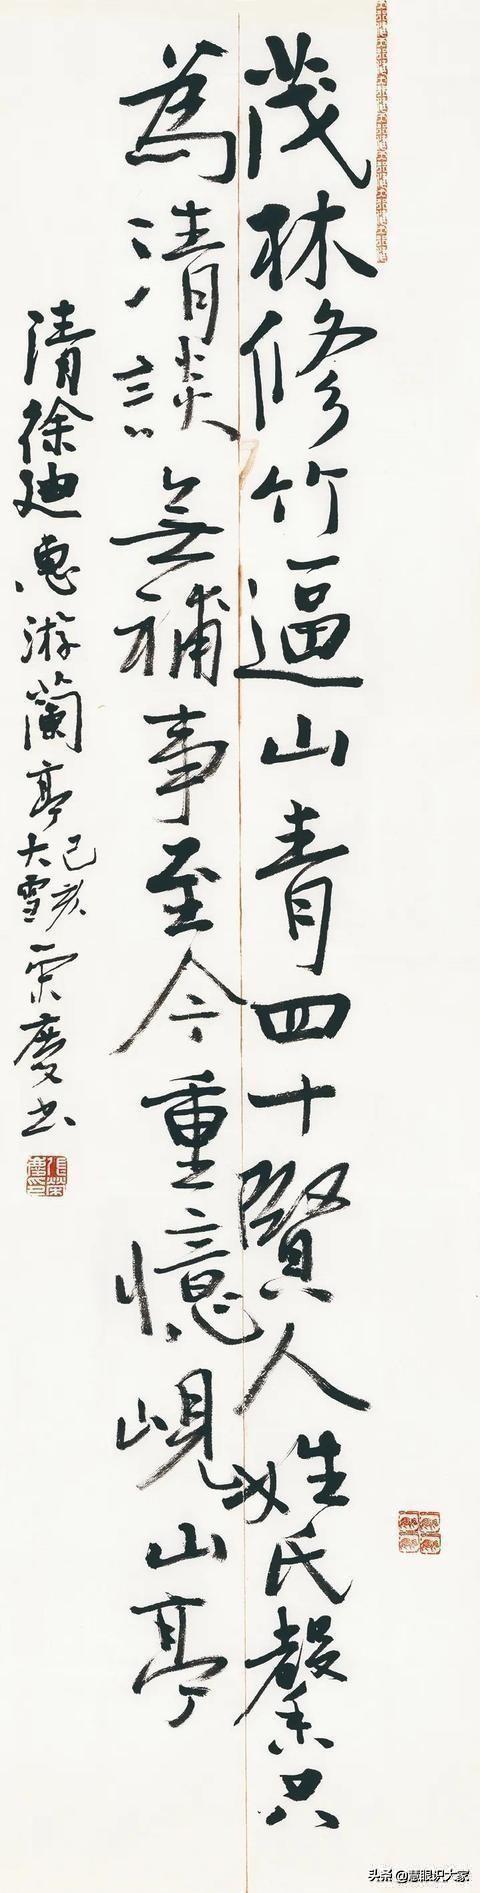 茂林修竹逼山青四十賢人姓氏馨只
為清談無補事至今重憶峴山亭
清徐廸惠游蘭亭
己亥
大雪
榮慶书
头条 @慧眼识大家